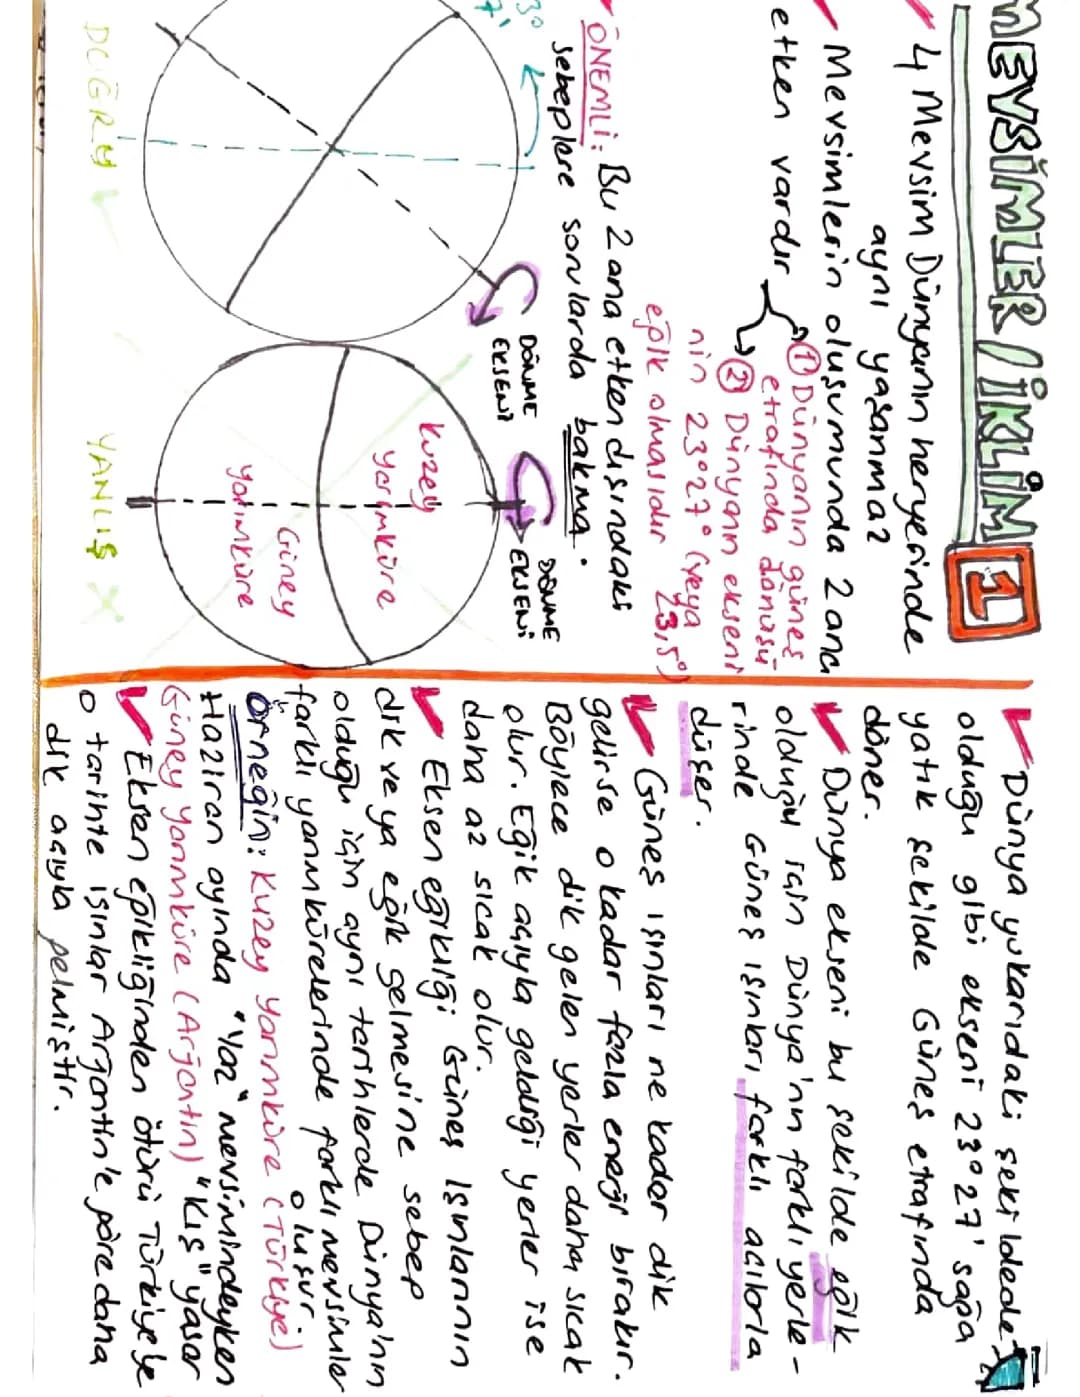 MEVSİMLER / İKLİM 1
4 Mevsim Dünyanın heryerinde
aynı yaşanmaz
Mevsimlerin oluşumunda 2 ana
etken vardır
① Dünyanın güneş
etrafında dönüşü
② Dünyanın ekseni
nin 23°27° (veya 23,5°)
eğik olmasıdır
ÖNEMLİ: Bu 2 ana etken dışındaki
sebeplere sorularda bakma.
DÖNME
EKSENİ
DOĞRU
DÖNME
EKSENİ
Kuzey
yarımküre
Güney
yarımküre
YANLIŞ X
Dünya yukarıdaki şekildede
olduğu gibi ekseni 23°27' sağa
yatık şekilde Güneş etrafında
döner.
Dünya ekseni bu şekilde eğik
olduğu için Dünya'nın farklı yerle-
rinde Güneş ışınları farklı açılarla
düşer.
Güneş ışınları ne kadar dik
gelirse o kadar fazla enerji bırakır.
Böylece dik gelen yerler daha sıcak
olur. Eğik açıyla geldiği yerler ise
daha az sıcak olur.
Eksen eğikliği Güneş Işınlarının
dik veya eğik gelmesine sebep
olduğu için aynı tarihlerde Dünya'nın
farklı yarımkürelerinde farklı mevsimler
oluşur.
Örneğin: Kuzey yarımküre (Türkiye)
Haziran ayında "Yaz" mevsimindeyken
Güney yarımküre (Arjantin) "Kış" yaşar
Eksen eğikliğinden ötürü Türkiye'ye
o tarihte ışınlar Arjantin'e göre daha
dik açıyla gelmiştir.